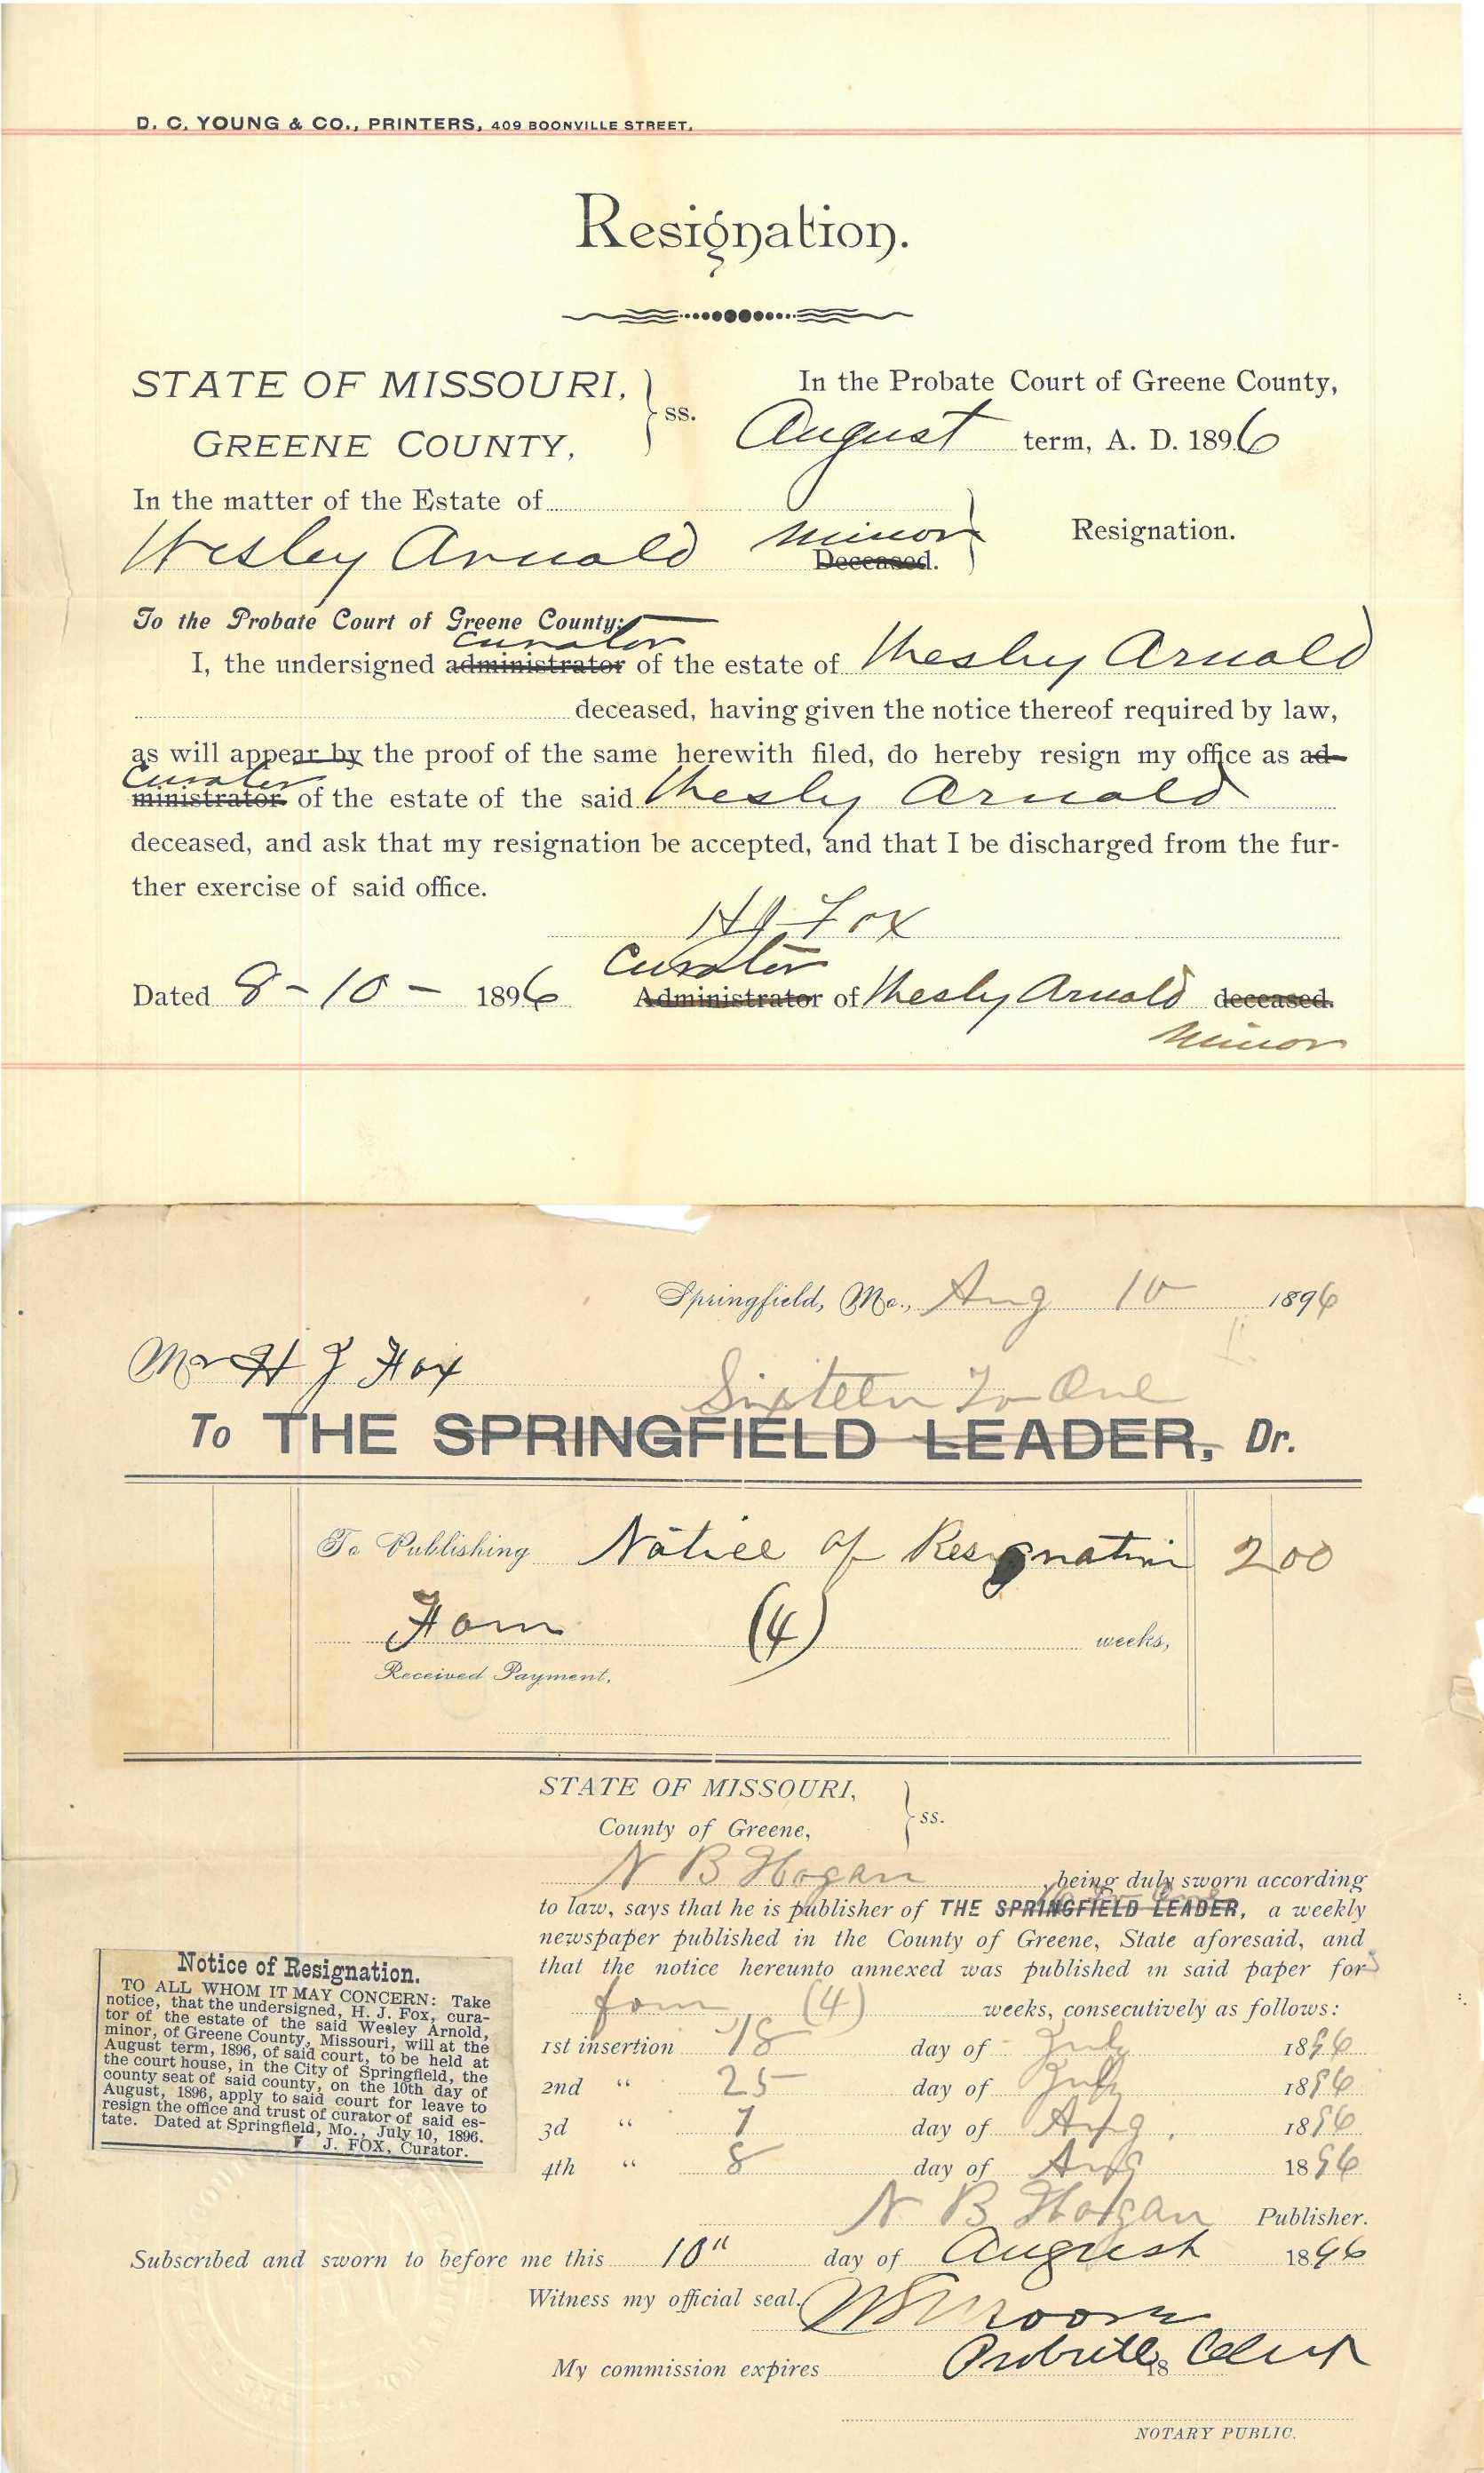 D. C. YOUNG & CO., PRINTERS, 409 BOONVILLE STREET.
Resignation.
STATE OF MISSOURI,
GREENE COUNTY,
ss.
In the Probate Court of Greene County,
August term, A. D. 1896
In the matter of the Estate of
Wesley Arnold minor
Deceased.
Resignation.
To the Probate Court of Greene County:
curator
I, the undersigned administrator of the estate of Wesley Arnold
deceased, having given the notice thereof required by law,
as will appear by the proof of the same herewith filed, do hereby resign my office as ad-
Curator
ministrator of the estate of the said Wesly Arnold
deceased, and ask that my resignation be accepted, and that I be discharged from the fur-
ther exercise of said office.
H J Fox
Curator
Dated 8-10- 1896 Administrator of Wesly Arnold deceased.
minor
Springfield, Mo., Aug 10 1896
Mr H J Fox
Sixteen To One
To THE SPRINGFIELD LEADER, Dr.
To Publishing Notice of Resignation 2 00
Four (4) weeks,
Received Payment,
STATE OF MISSOURI,
County of Greene,
ss.
N B Hogan being duly sworn according
16 To One
to law, says that he is publisher of THE SPRINGFIELD LEADER, a weekly
newspaper published in the County of Greene, State aforesaid, and
that the notice hereunto annexed was published in said paper for
four (4) weeks, consecutively as follows:
1st insertion 18 day of July 1896
2nd " 25 day of July 1896
3d " 1 day of Aug. 1896
4th " 8 day of Aug 1896
N B Hogan Publisher.
Notice of Resignation.
TO ALL WHOM IT MAY CONCERN: Take
notice, that the undersigned, H. J. Fox, cura-
tor of the estate of the said Wesley Arnold,
minor, of Greene County, Missouri, will at the
August term, 1896, of said court, to be held at
the court house, in the City of Springfield, the
county seat of said county, on the 10th day of
August, 1896, apply to said court for leave to
resign the office and trust of curator of said es-
tate. Dated at Springfield, Mo., July 10, 1896.
J. FOX, Curator.
Subscribed and sworn to before me this 10" day of August 1896
Witness my official seal.
My commission expires Probate Clerk 18
NOTARY PUBLIC.